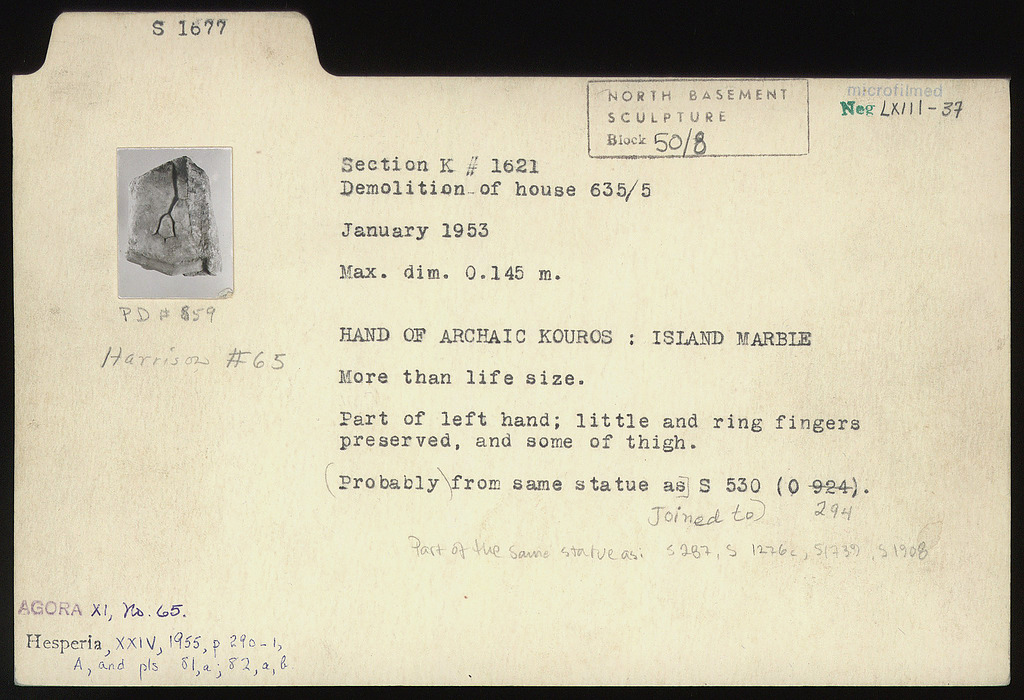 S 1677
microfilmed
Neg LXIII-37
NORTH BASEMENT
SCULPTURE
Block 50/8
Section K # 1621
Demolition of house 635/5
January 1953
Max. dim. 0.145 m.
PD # 859
Harrison #65
HAND OF ARCHAIC KOUROS : ISLAND MARBLE
More than life size.
Part of left hand; little and ring fingers
preserved, and some of thigh.
(Probably) from same statue as] S 530 (O 924).
Joined to) 294
Part of the same statue as: S 287, S 1276c, S 1739, S 1908
AGORA XI, No. 65.
Hesperia, XXIV, 1955, p 290-1,
A, and pls 81,a; 82,a,b